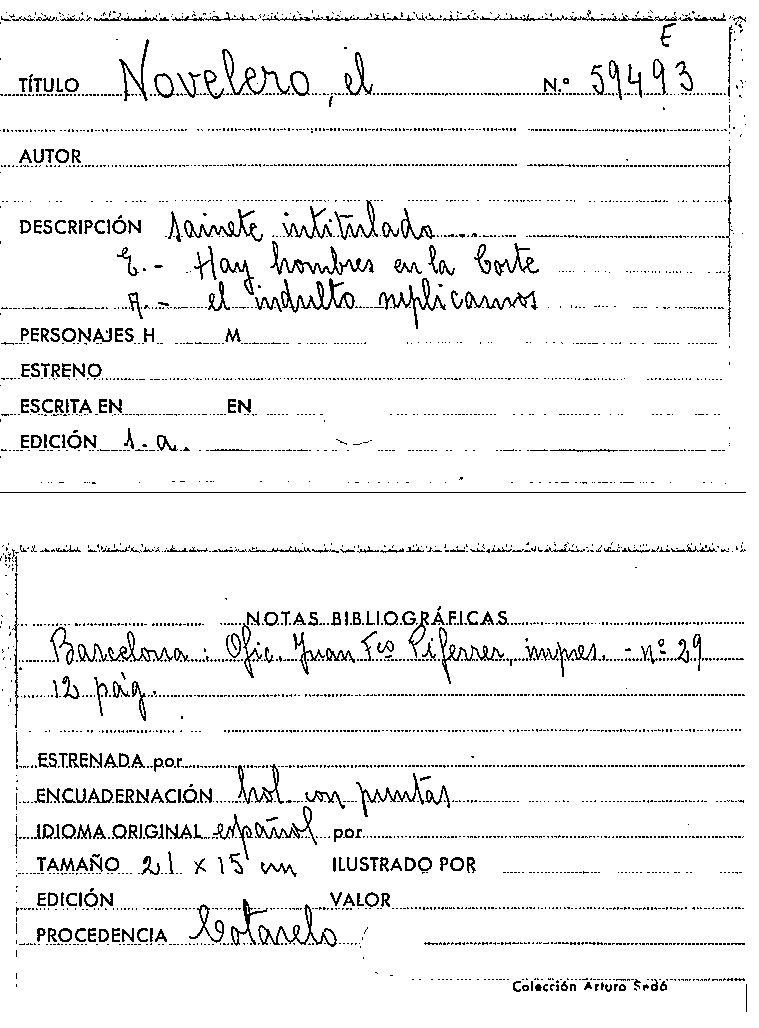 E
TÍTULO Novelero, el N.º 59493
AUTOR
DESCRIPCIÓN Sainete intitulado ...
E.- Hay hombres en la Corte
A.- el indulto suplicamos
PERSONAJES H M
ESTRENO
ESCRITA EN EN
EDICIÓN s.a.
NOTAS BIBLIOGRÁFICAS
Barcelona: Ofic. Juan Fco Piferrer, impres. - nº 29
12 pág.
ESTRENADA por
ENCUADERNACIÓN hol. con puntas
IDIOMA ORIGINAL español por
TAMAÑO 21 x 15 cm ILUSTRADO POR
EDICIÓN VALOR
PROCEDENCIA Cotarelo
Colección Arturo Sedó